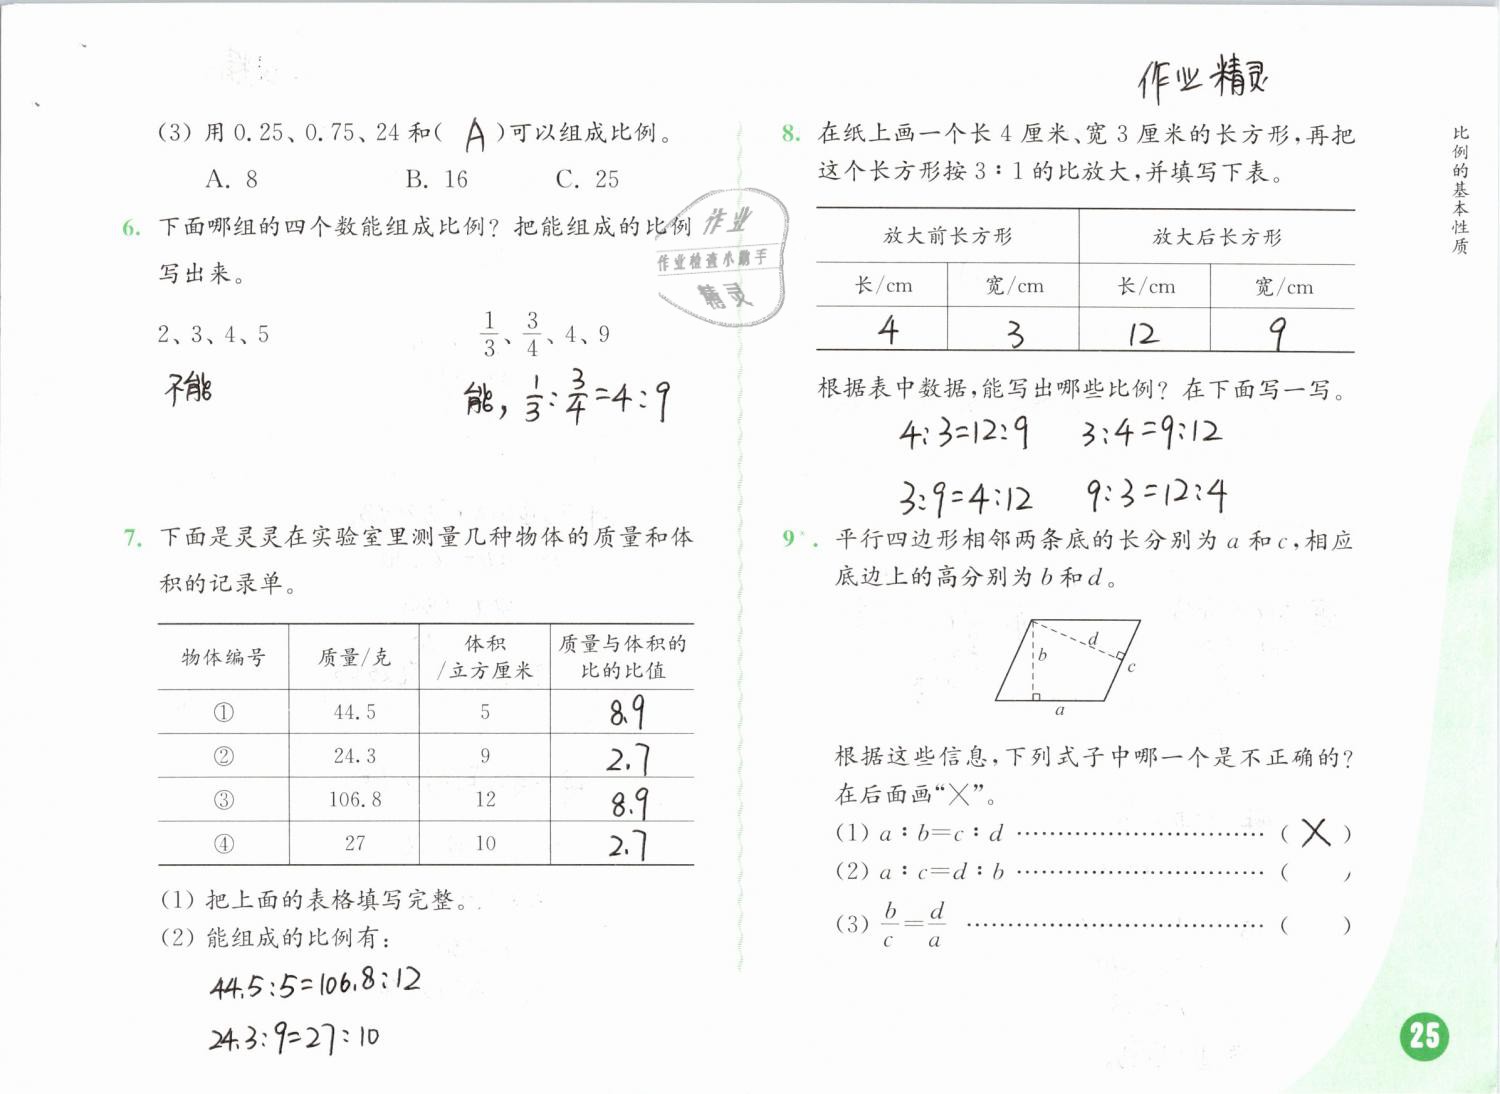 作业精灵
(3) 用 0.25、0.75、24 和( A )可以组成比例。
A. 8 B. 16 C. 25
6. 下面哪组的四个数能组成比例？把能组成的比例
写出来。
2、3、4、5 1/3、3/4、4、9
不能 能，1/3:3/4=4:9
7. 下面是灵灵在实验室里测量几种物体的质量和体
积的记录单。
物体编号 质量/克 体积/立方厘米 质量与体积的比的比值
① 44.5 5 8.9
② 24.3 9 2.7
③ 106.8 12 8.9
④ 27 10 2.7
(1) 把上面的表格填写完整。
(2) 能组成的比例有：
44.5:5=106.8:12
24.3:9=27:10
作业
作业检查小助手
精灵
8. 在纸上画一个长 4 厘米、宽 3 厘米的长方形，再把
这个长方形按 3∶1 的比放大，并填写下表。
放大前长方形 放大后长方形
长/cm 宽/cm 长/cm 宽/cm
4 3 12 9
根据表中数据，能写出哪些比例？在下面写一写。
4:3=12:9 3:4=9:12
3:9=4:12 9:3=12:4
9*. 平行四边形相邻两条底的长分别为 a 和 c，相应
底边上的高分别为 b 和 d。
d
b
c
a
根据这些信息，下列式子中哪一个是不正确的？
在后面画“╳”。
(1) a∶b=c∶d ………………………… ( ╳ )
(2) a∶c=d∶b ………………………… ( )
(3) b/c=d/a ………………………… ( )
比例的基本性质
25